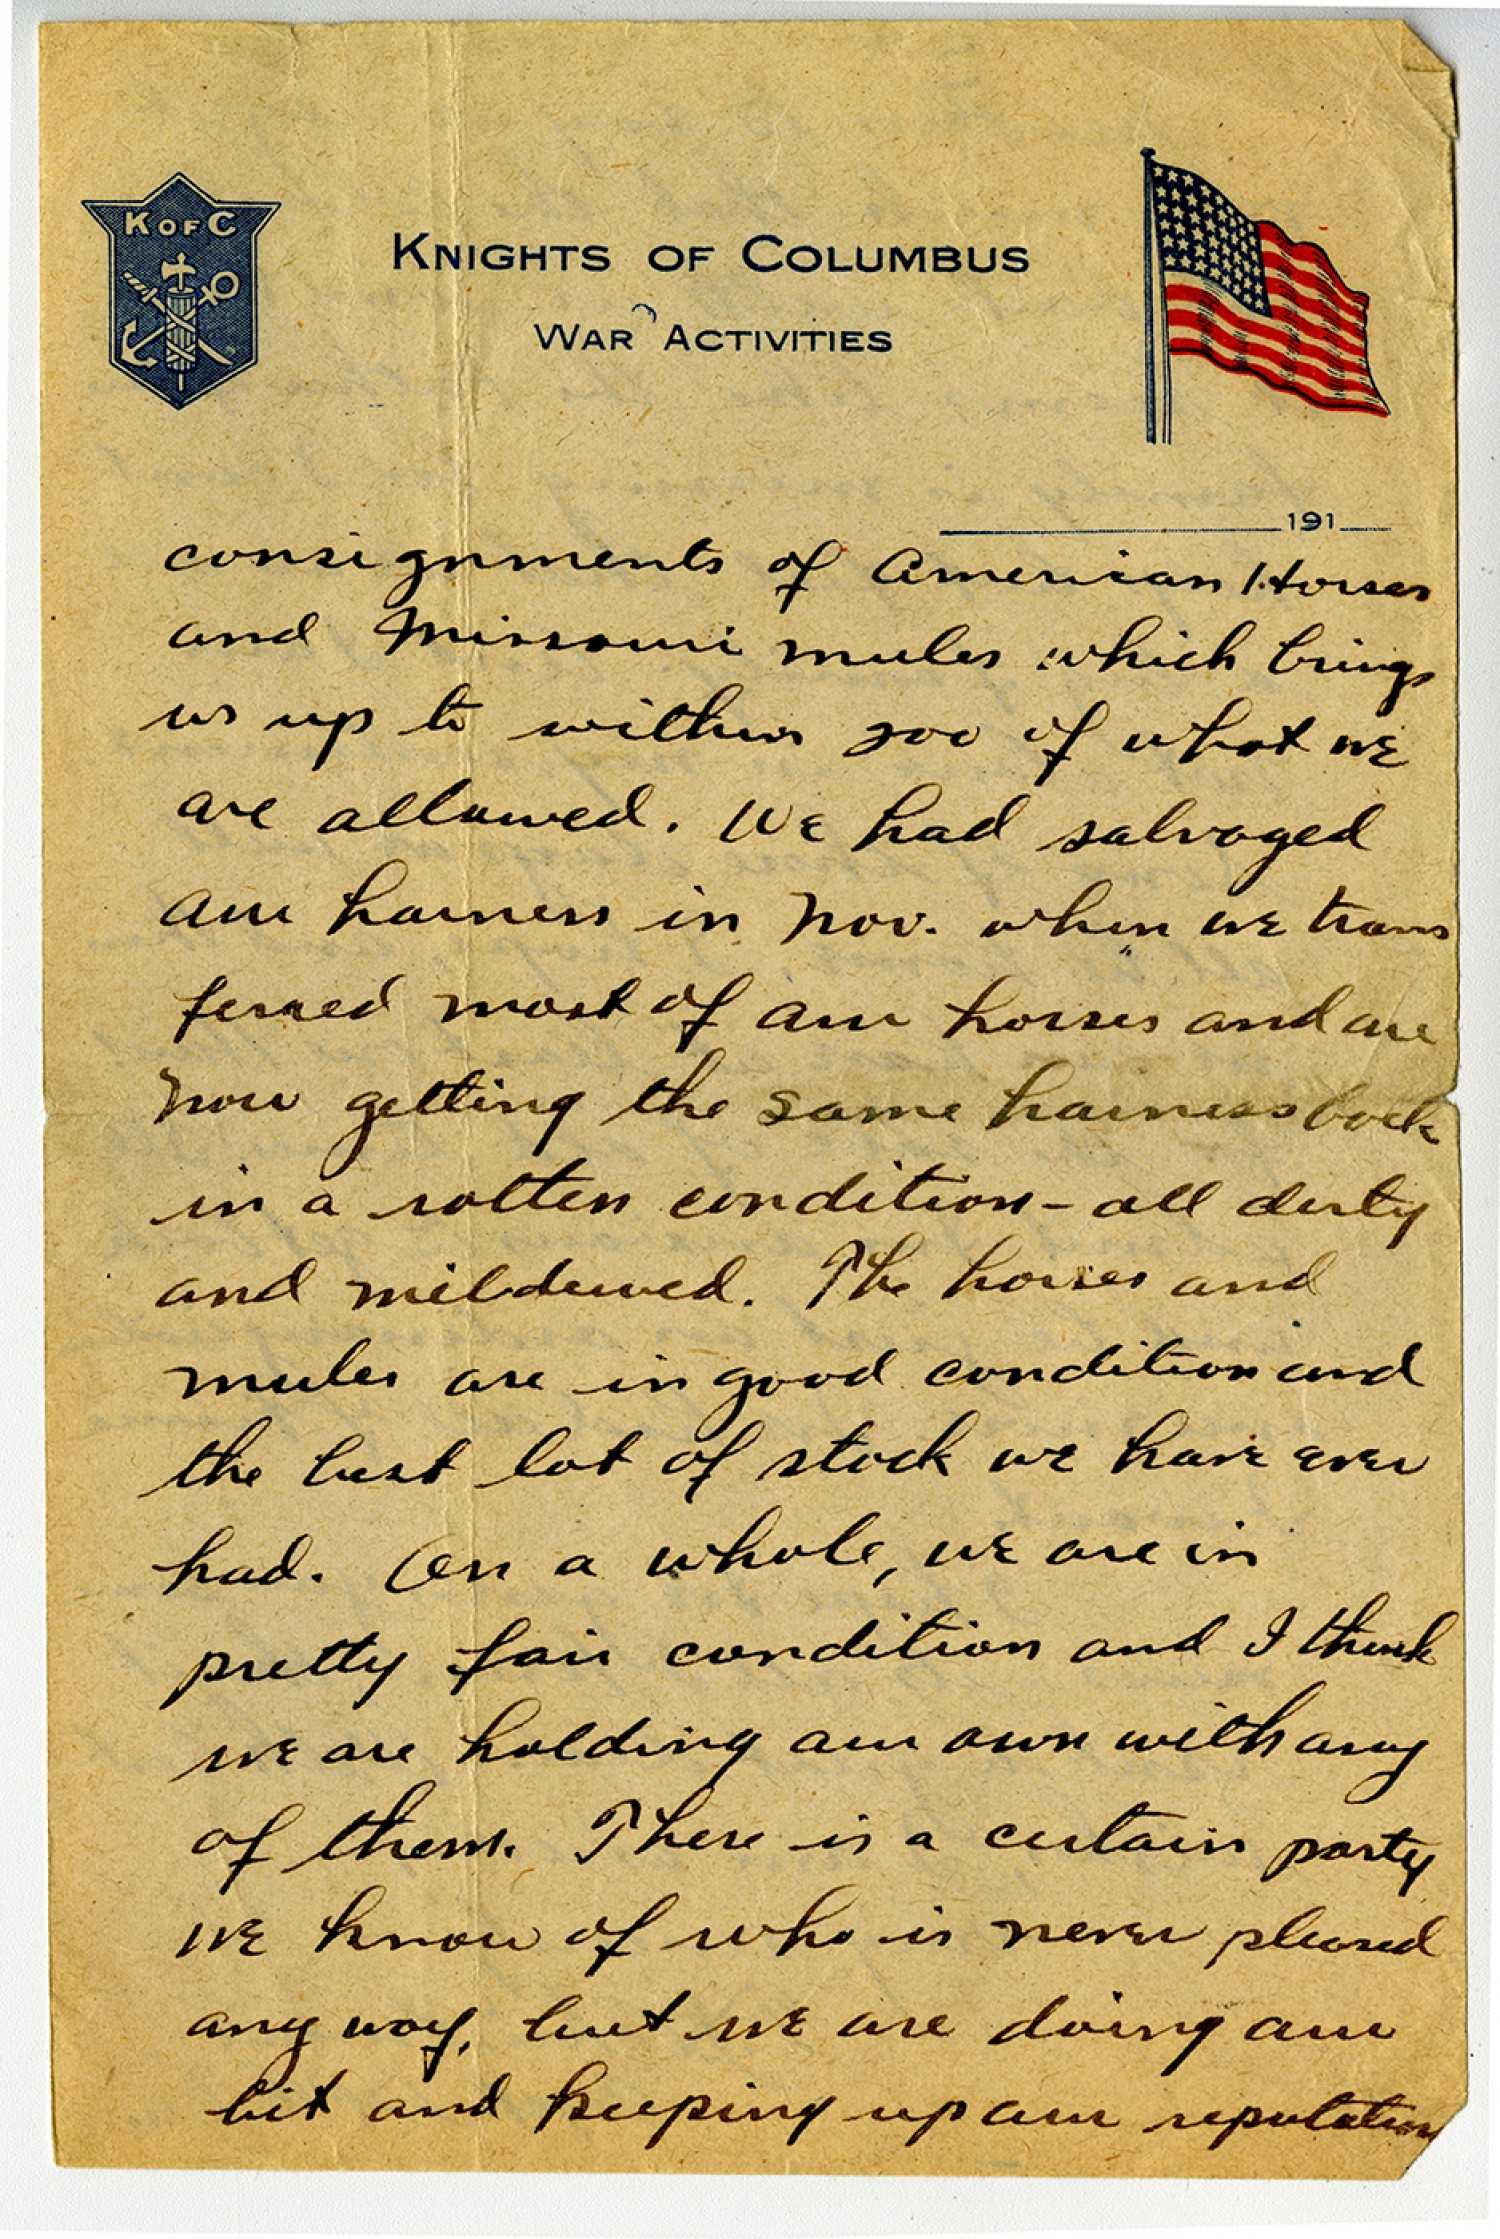 K OF C
KNIGHTS OF COLUMBUS
WAR ACTIVITIES
191
consignments of American Horses
and Missouri mules which brings
us up to within 200 of what we
are allowed. We had salvaged
our harness in Nov. when we trans
ferred most of our horses and are
now getting the same harness back
in a rotten condition - all dirty
and mildewed. The horses and
mules are in good condition and
the best lot of stock we have ever
had. On a whole, we are in
pretty fair condition and I think
we are holding our own with any
of them. There is a certain party
we know of who is never pleased
any way, but we are doing our
bit and keeping up our reputation